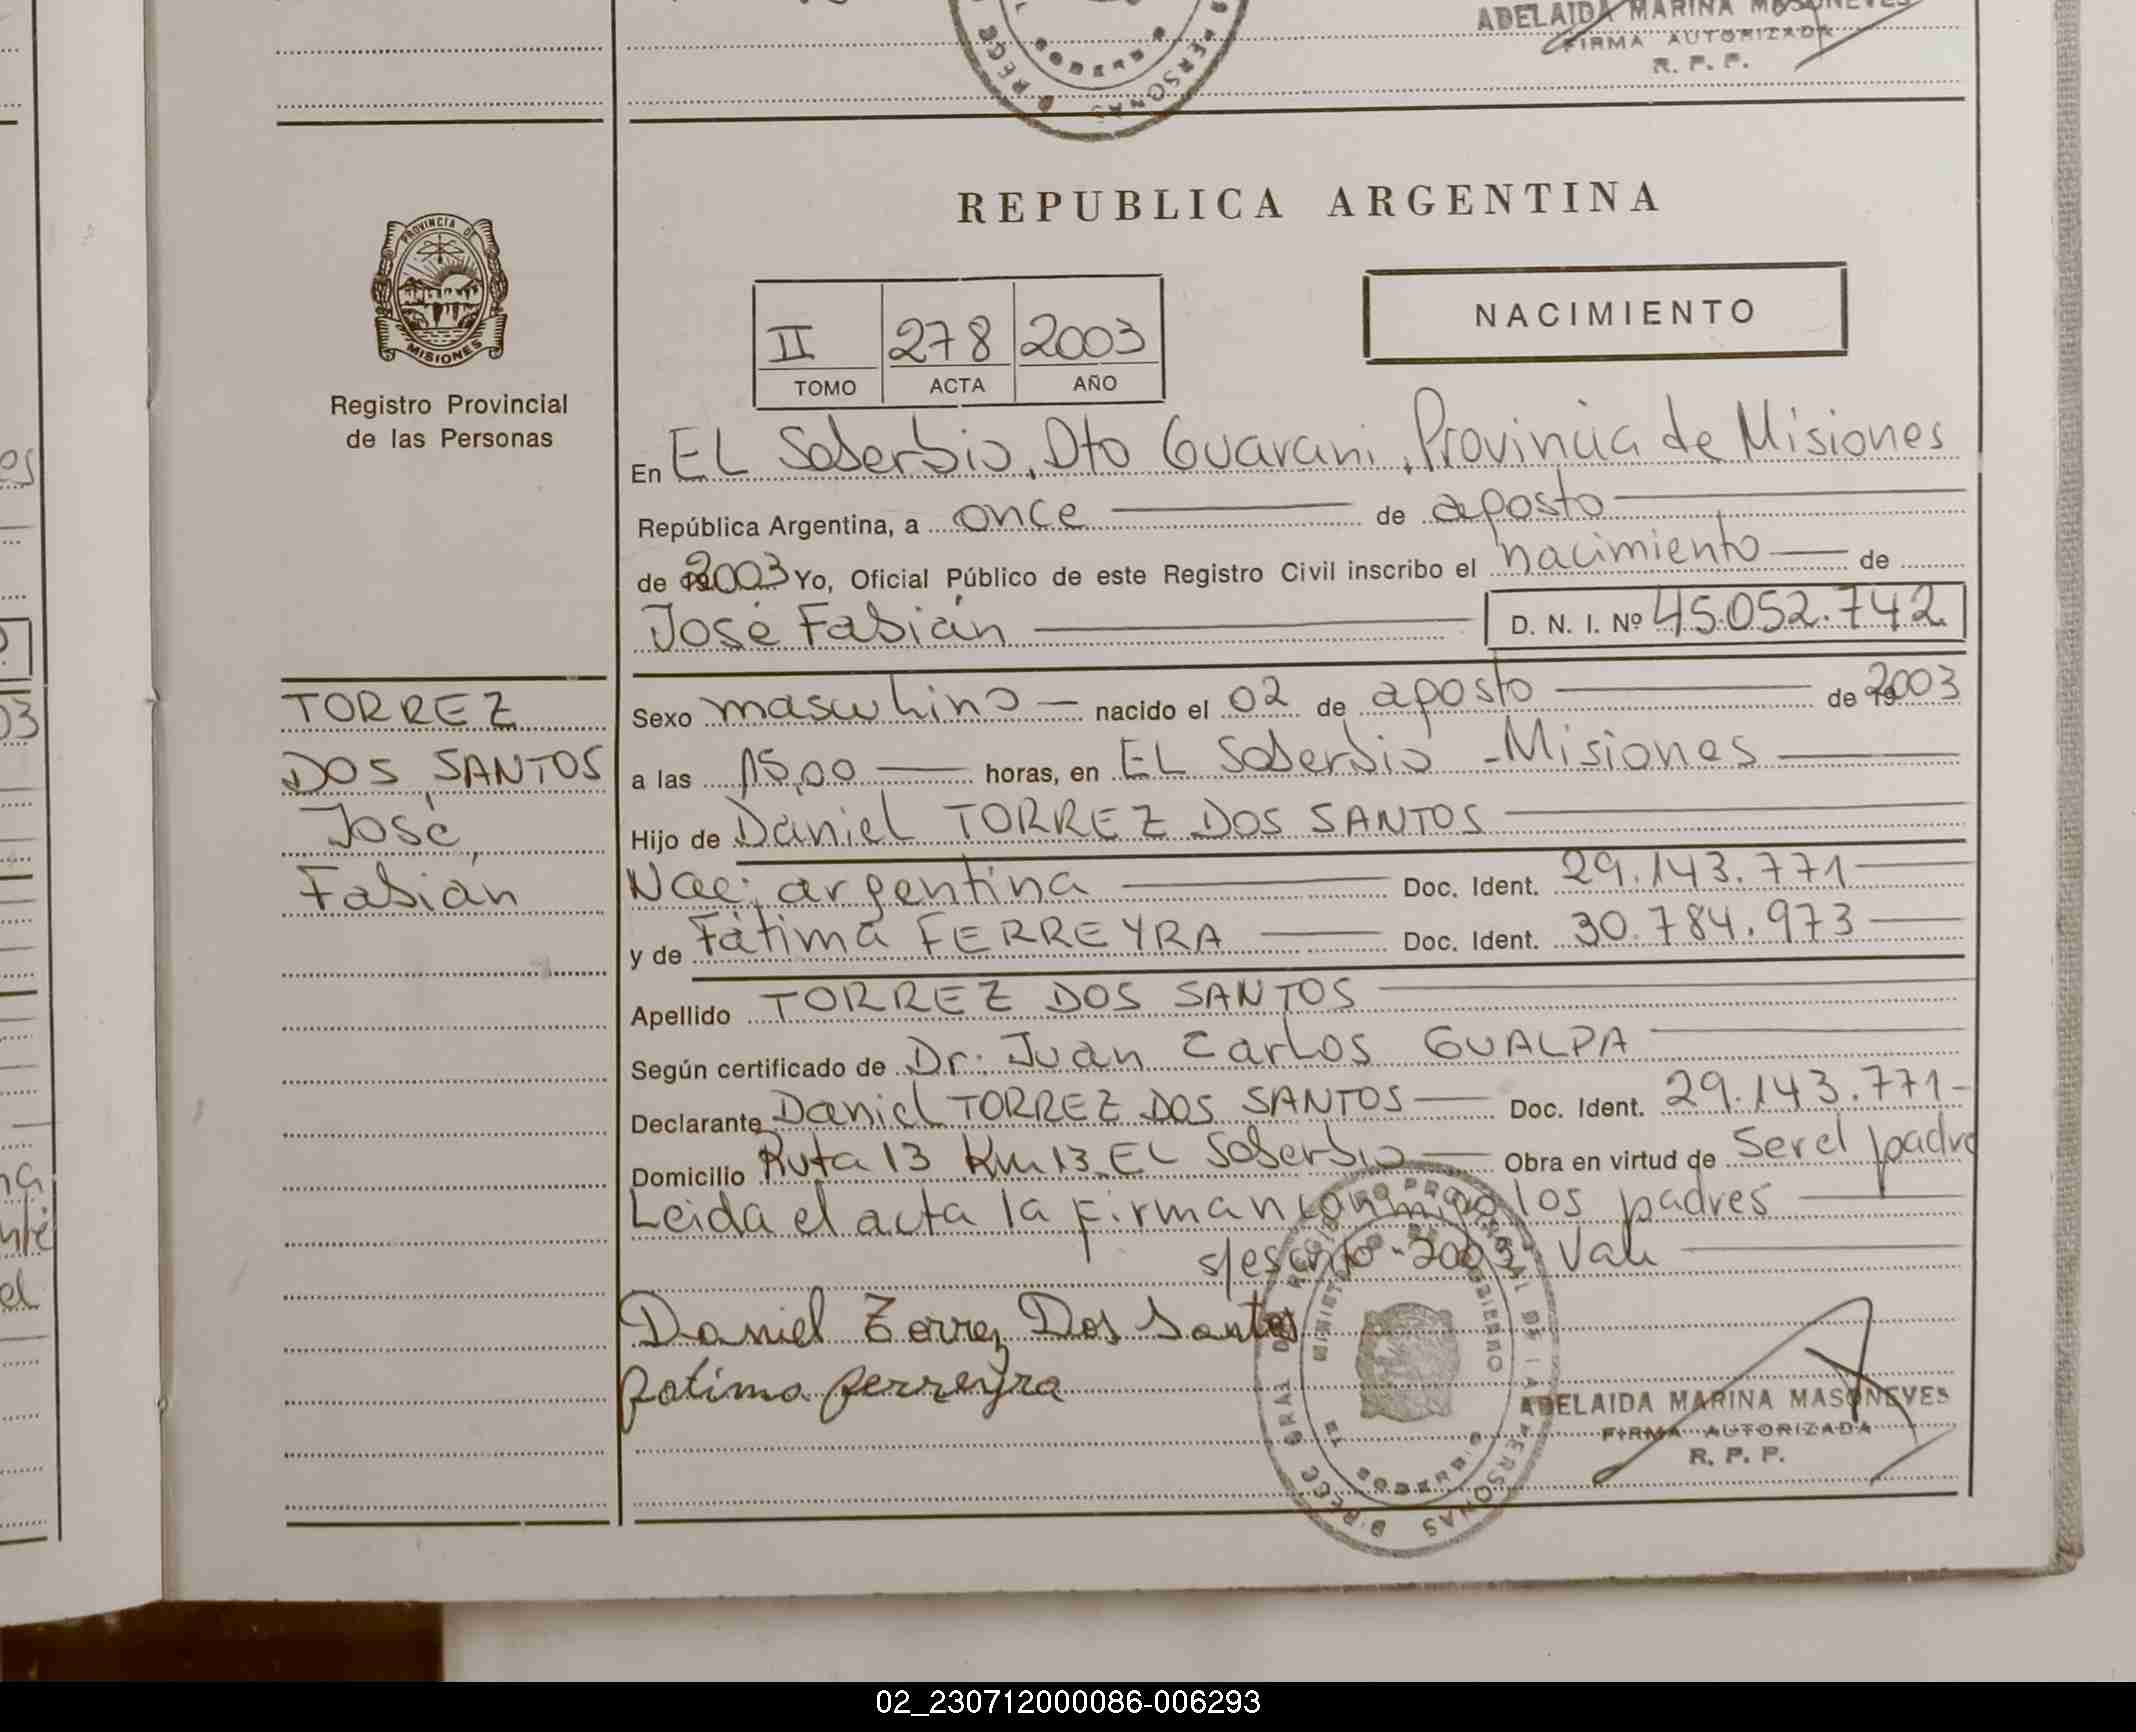 ADELAIDA MARINA MASONEVES
FIRMA AUTORIZADA
R. P. P.
PERSONAS
REPUBLICA ARGENTINA
PROVINCIA DE
MISIONES
Registro Provincial
de las Personas
II 278 2003
TOMO ACTA AÑO
NACIMIENTO
En EL Soberbio, Dto Guarani, Provincia de Misiones
República Argentina, a once de agosto
de 2003 Yo, Oficial Público de este Registro Civil inscribo el nacimiento de
José Fabián D. N. I. Nº 45.052.742
TORREZ
DOS SANTOS
José
Fabián
Sexo masculino nacido el 02 de agosto de 2003
a las 15,00 horas, en EL Soberbio - Misiones
Hijo de Daniel TORREZ DOS SANTOS
Nac: argentina Doc. Ident. 29.143.771
y de Fátima FERREYRA Doc. Ident. 30.784.973
Apellido TORREZ DOS SANTOS
Según certificado de Dr. Juan Carlos GUALPA
Declarante Daniel TORREZ DOS SANTOS Doc. Ident. 29.143.771
Domicilio Ruta 13 Km 13 EL Soberbio Obra en virtud de ser el padre
Leida el acta la firman conmigo los padres
s/escrito - 2003 Vale
Daniel Torrez Dos Santos
fatima ferreyra
ADELAIDA MARINA MASONEVES
FIRMA AUTORIZADA
R. P. P.
02_230712000086-006293